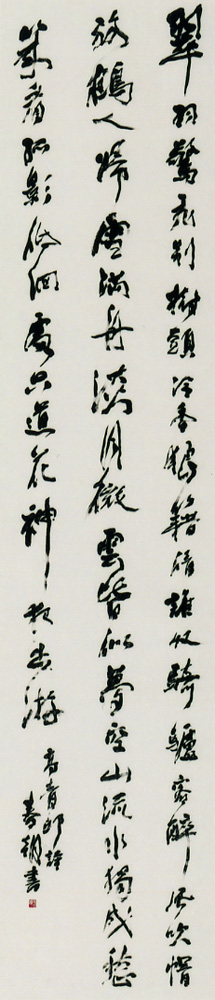 翠羽驚飛別樹頭冷香狼籍倩誰收騎驢客醉風吹帽
放鶴人歸雪滿舟淡月微雲皆似夢空山流水獨成愁
幾看孤影低徊處只道花神夜出游
高青邱詩
書